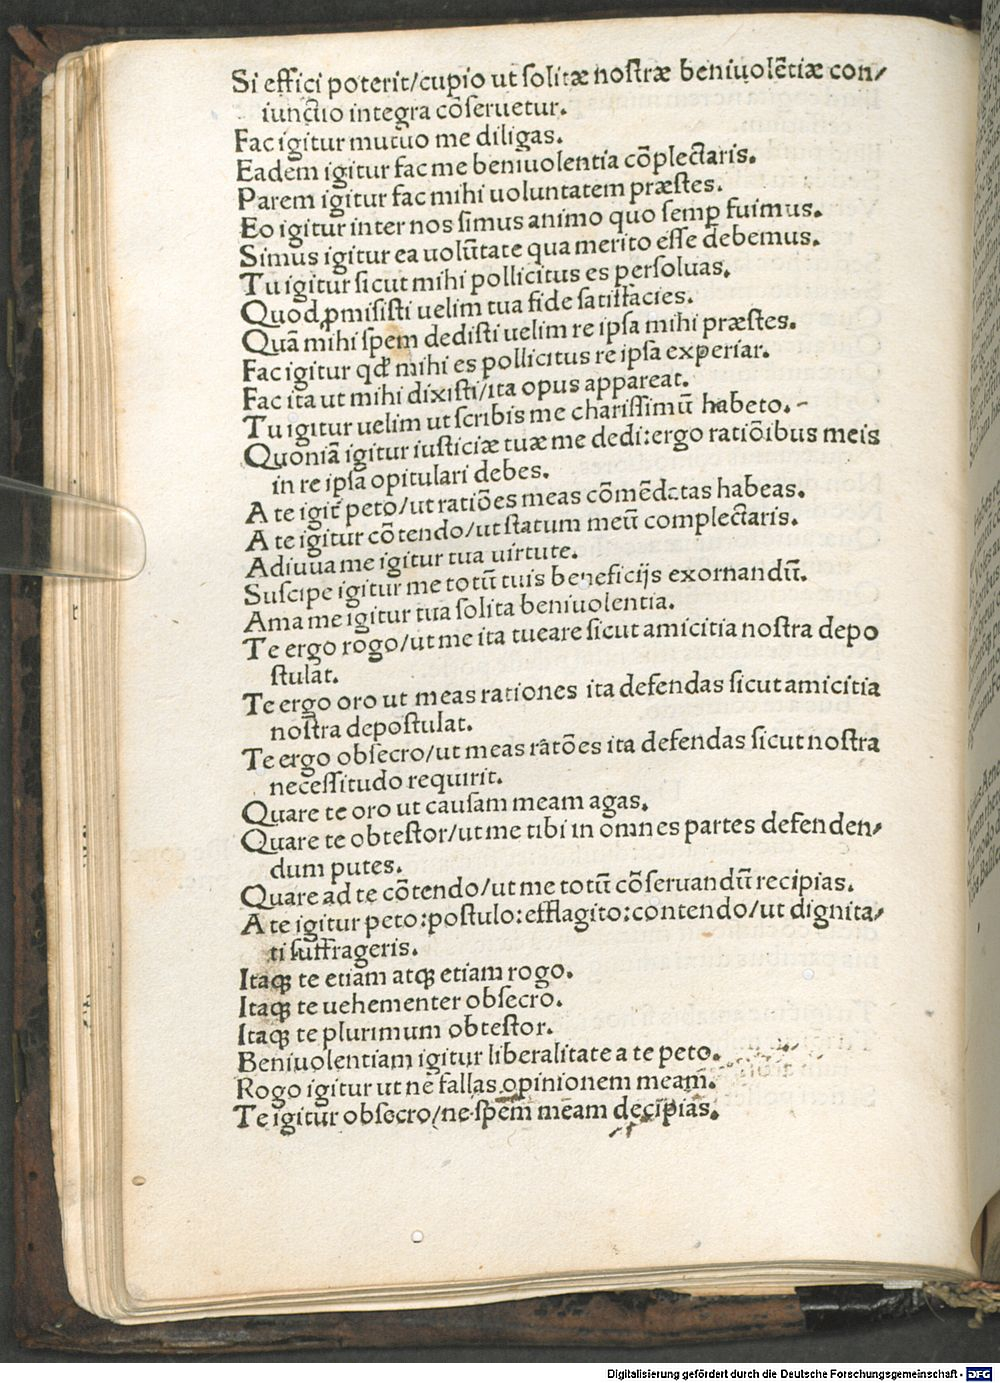 Si effici poterit/cupio ut ſolitæ noſtræ beniuolētiæ con/
iunctio integra cōſeruetur.
Fac igitur mutuo me diligas.
Eadem igitur fac me beniuolentia cōplectaris.
Parem igitur fac mihi uoluntatem præſtes.
Eo igitur inter nos ſimus animo quo ſemꝑ fuimus.
Simus igitur ea uolūtate qua merito eſſe debemus.
Tu igitur ſicut mihi pollicitus es perſoluas.
Quod ꝓmiſiſti uelim tua fide ſatiſfacies.
Quā mihi ſpem dediſti uelim re ipſa mihi præſtes.
Fac igitur qđ mihi es pollicitus re ipſa experiar.
Fac ita ut mihi dixiſti/ita opus appareat.
Tu igitur uelim ut ſcribis me chariſſimū habeto.
Quoniā igitur iuſticiæ tuæ me dedi:ergo ratiōibus meis
in re ipſa opitulari debes.
A te igit̄ peto/ut ratiōes meas cōmēdatas habeas.
A te igitur cōtendo/ut ſtatum meū complectaris.
Adiuua me igitur tua uirtute.
Suſcipe igitur me totū tuis beneficijs exornandū.
Ama me igitur tua ſolita beniuolentia.
Te ergo rogo/ut me ita tueare ſicut amicitia noſtra depo
ſtulat.
Te ergo oro ut meas rationes ita defendas ſicut amicitia
noſtra depoſtulat.
Te ergo obſecro/ut meas rātōes ita defendas ſicut noſtra
neceſſitudo requirit.
Quare te oro ut cauſam meam agas.
Quare te obteſtor/ut me tibi in omnes partes defenden/
dum putes.
Quare ad te cōtendo/ut me totū cōſeruandū recipias.
A te igitur peto:poſtulo:efflagito:contendo/ut dignita/
ti ſuffrageris.
Itaqꝫ te etiam atqꝫ etiam rogo.
Itaqꝫ te uehementer obſecro.
Itaqꝫ te plurimum obteſtor.
Beniuolentiam igitur liberalitate a te peto.
Rogo igitur ut ne fallas opinionem meam.
Te igitur obſecro/ne ſpem meam decipias.
Digitalisierung gefördert durch die Deutsche Forschungsgemeinschaft - DFG